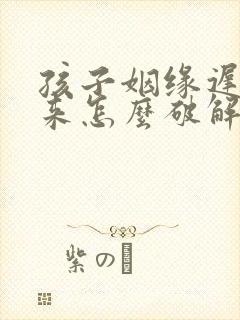 孩子姻缘遲
来怎麼破解
紫の